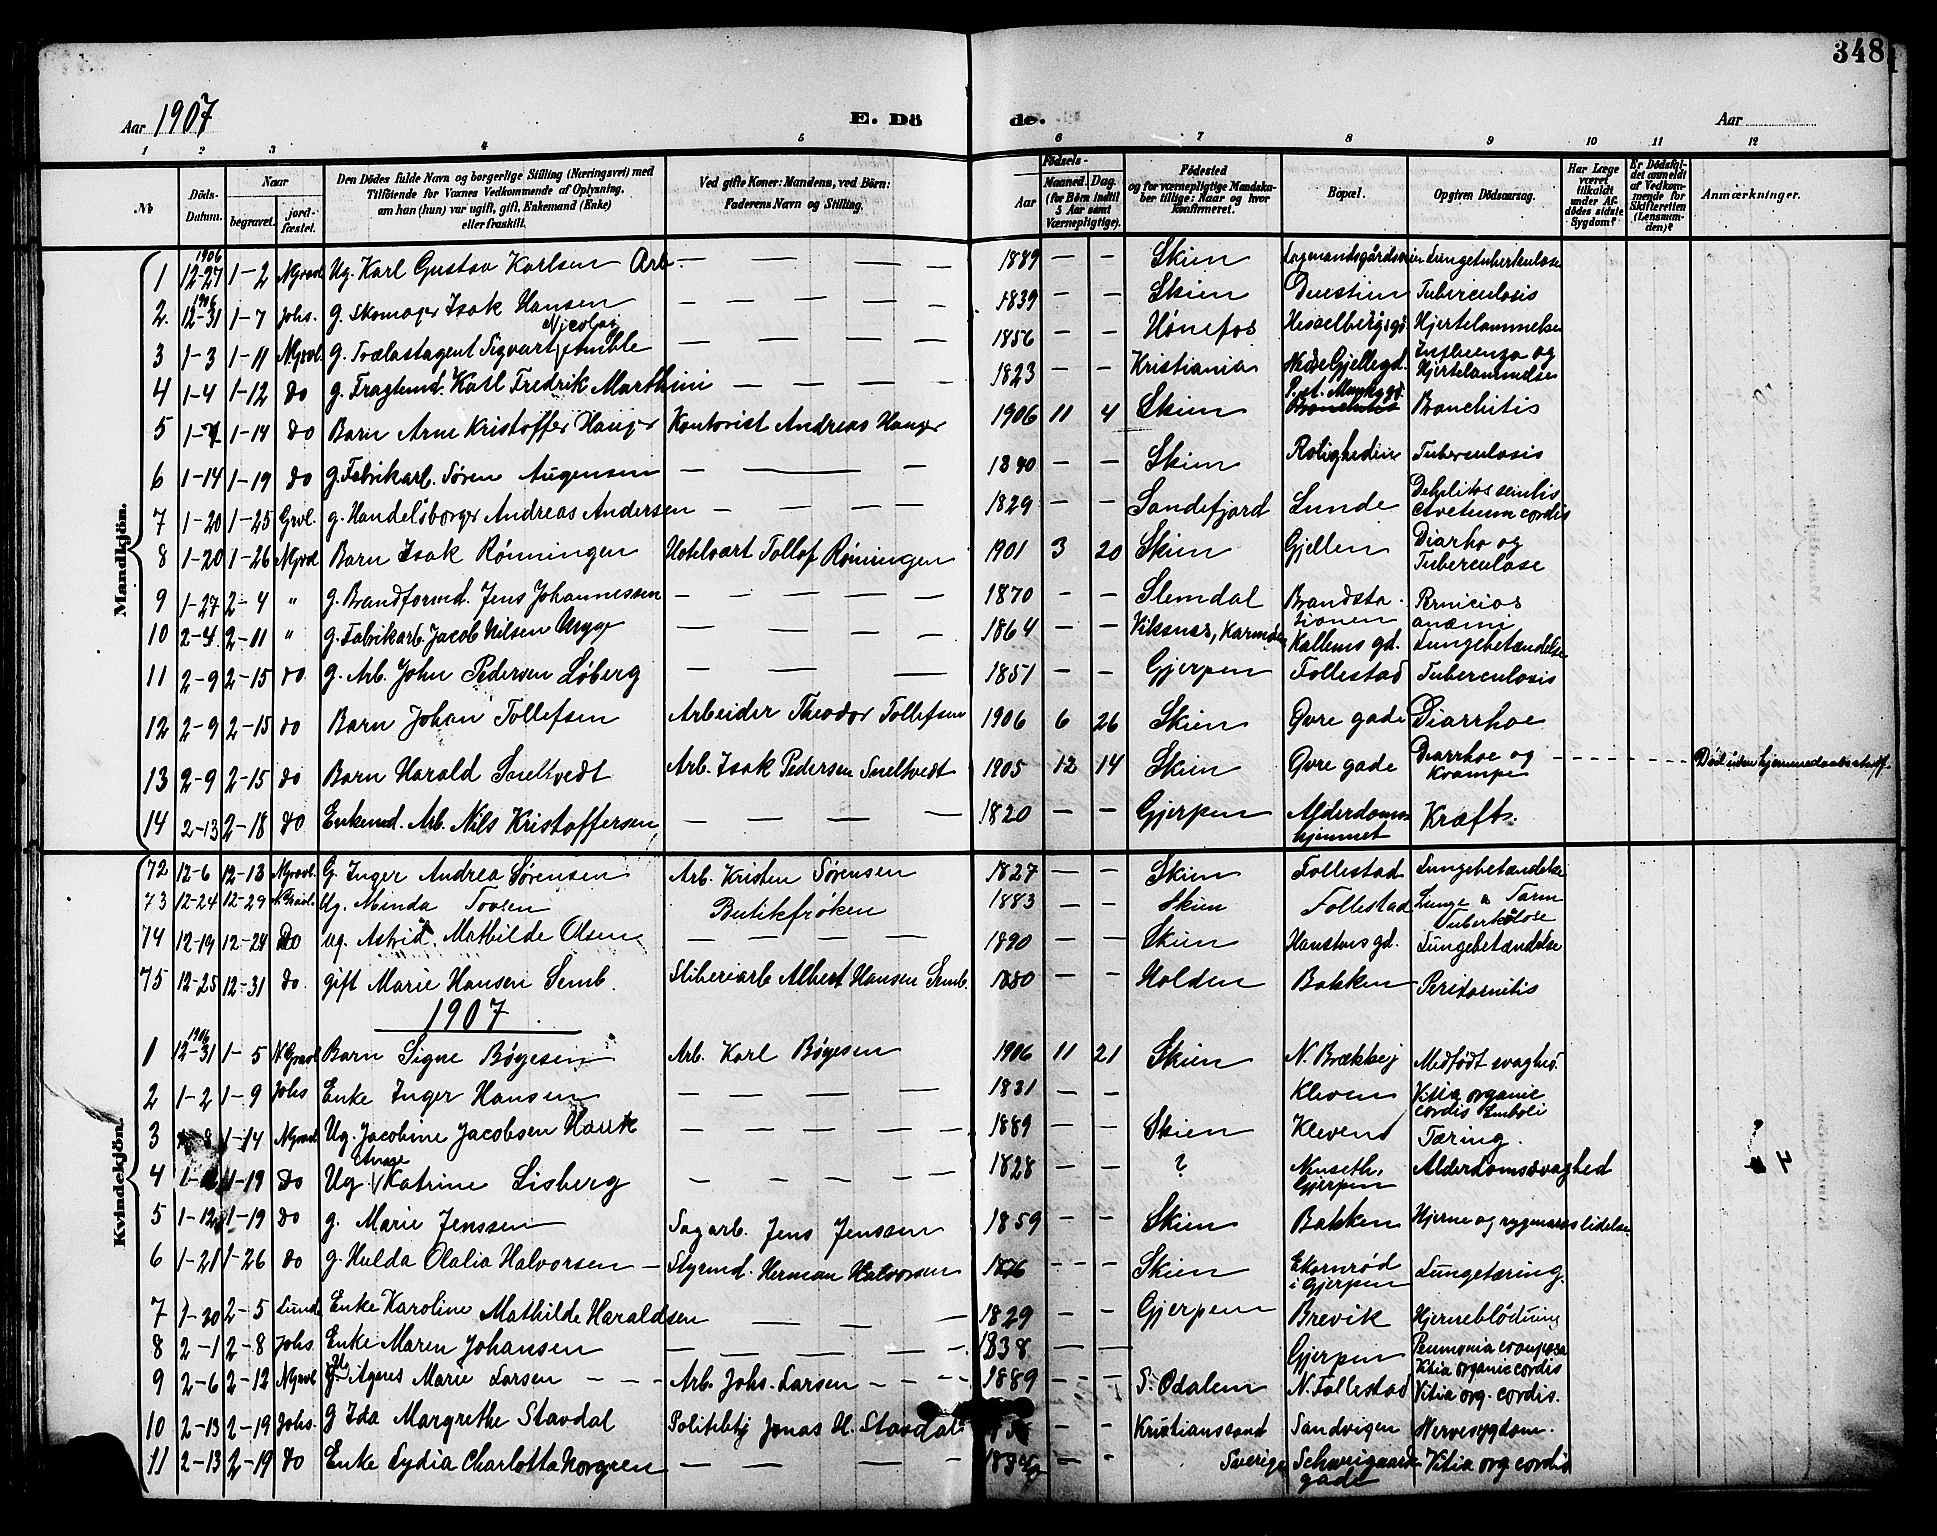 348
Aar 1907
E. Dö
de.
Aar
1 2 3 4 5 6 7 8 9 10 11 12
No
Döds-Datum.
Naar
begravet.
jord-fæstet.
Den Dödes fulde Navn og borgerlige Stilling (Næringsvei) med
Tilföiende for Voxnes Vedkommende af Oplysning,
om han (hun) var ugift, gift, Enkemand (Enke)
eller fraskilt.
Ved gifte Koner: Mandens, ved Börn:
Faderens Navn og Stilling.
Födsels-
Aar
Maaned. Dag.
(for Börn indtil 5 Aar samt Værnepligtige).
Födested
og for værnepligtige Mandska-
ber tillige: Naar og hvor
Konfirmeret.
Bopæl.
Opgiven Dödsaarsag.
Har Læge været tilkaldt under Afdödes sidste Sygdom?
Er Dödsfaldet anmeldt af Vedkommende for Skifteretten (Lensmanden)?
Anmærkninger.
Mandkjön.
1 1906 12-27 1-2 N Gravl Ug. Karl Gustav Karlsen Arb. — — — 1889 — — Skien Lungetuberkulose
2. 12-31 1-7 Johs. g. Skomager Isak Hansen — — — — 1839 — — Skien Duestien Tuberculosis
3 1-3 1-11 N Gravl. g. Trælastagent Sigvart Nicolai Amble — — — — 1856 — — Hønefos Hesselbergsgd. Hjertelammelse
4 1-4 1-12 do g. Fragtemd. Karl Fredrik Marthini — — — — 1823 — — Kristiania Gjellegd. Influenza og Hjertelammelse
5 1-7 1-14 do Barn Arne Kristoffer Hauger Kontorist Andreas Hauger 1906 11 4 Skien Bronchitis
6 1-14 1-19 do g. Fabrikarb. Sören Augensen — — — 1840 — — Skien Roligheden Tuberculosis
7 1-20 1-25 Gravl. g. Handelsborger Andreas Andersen — — — — 1829 — — Sandefjord Lunde cordis
8 1-20 1-26 N Gravl Barn Isak Rønningen Hotelvært Tollof Rønningen 1901 3 20 Skien Gjellen Diarho og Tuberculose
9 1-27 2-4 " g. Brandformd. Jens Johannessen — — — — 1870 — — Slemdal Brandstationen Perniciøs anæmi
10 2-4 2-11 " g. Fabrikarb. Jacob Nilsen — — — — 1864 — — Viksnes, Karmøen Kallems gd. Lungebetændelse
11 2-9 2-15 do g. Arb. John Pedersen Løberg — — — 1851 — — Gjerpen Follestad Tuberculosis
12 2-9 2-15 do Barn Johan Tollefsen Arbeider Theodor Tollefsen 1906 6 26 Skien Øvre gade Diarrhoe
13 2-9 2-15 do Barn Harald Sneltvedt Arb. Isak Pedersen Sneltvedt 1905 12 14 Skien Øvre gade Diarrhoe og Krampe - - - - Død uden hjemmedaabsattest
14 2-13 2-18 do Enkemd. Arb. Nils Kristoffersen — — — — 1820 — — Gjerpen Alderdomshjemmet Kræft.
Kvindekjön.
72 12-6 12-13 N Gravl. G. Inger Andrea Sørensen Arb. Kristen Sørensen 1827 — — Skien Follestad Lungebetændelse
73 12-24 12-29 N. Gravl. Ug. Minda Tovsen Butikfrøken 1883 — — Skien Follestad Lunge & Tarm Tuberkulose
74 12-19 12-24 Do ug. Astrid Mathilde Olsen — — — — 1890 — — Skien Hanstens gd. Lungebetændelse
75 12-25 12-31 do. gift Marie Hansen Semb Sliberiarb Albert Hansen Semb. 1850 — — Holden Bakken
1907
1 1906 12-31 1-5 N Gravl Barn Signe Bøyesen Arb. Karl Bøyesen 1906 11 21 Skien N. Brækkej Medfødt svaghed.
2 1-2 1-9 Johs Enke Inger Hansen — — — — 1831 — — Kleven Vitia organic cordis Emboli
3 8 1-14 N Gravl Ug. Jacobine Jacobsen Hauk — — — — 1889 — — Skien Kleven Tæring.
4 1-19 do Ug Anne Katrine Lisberg — — — — 1828 — — ? Nenseth, Gjerpen Alderdomssvaghed
5 1-12 1-19 do g. Marie Jenssen Sagarb. Jens Jenssen 1859 — — Skien Bakken Hjerne og rygmarvslidelse
6 1-21 1-26 do g. Hulda Olalia Halvorsen — Styrmd. Herman Halvorsen - - - Skien Ekornrød i Gjerpen Lungetæring.
7 1-30 2-5 Lund Enke Karoline Mathilde Haraldsen — — — 1829 — — Gjerpen Brevik Hjerneblödning
8 2-1 2-8 Johs. Enke Maren Johansen — — — — 1838 — — Gjerpen Pneumonia crouposa Vitia organic cordis
9 2-6 2-12 N Gravl Agnes Marie Larsen - - - Arb. Johs. Larsen - - - - 1889 - - - S. Odalen N. Follestad Vitia org. cordis.
10 2-13 2-19 Johs. g Ida Margrethe Stavdal Politibtj Jonas H. Stavdal - - Kristianssand Sandvigen Nervesygdom.
11 2-13 2-19 do Enke Lydia Charlotta Norgren — — — — Sverige Schweigaardsgade Vitia org cordis